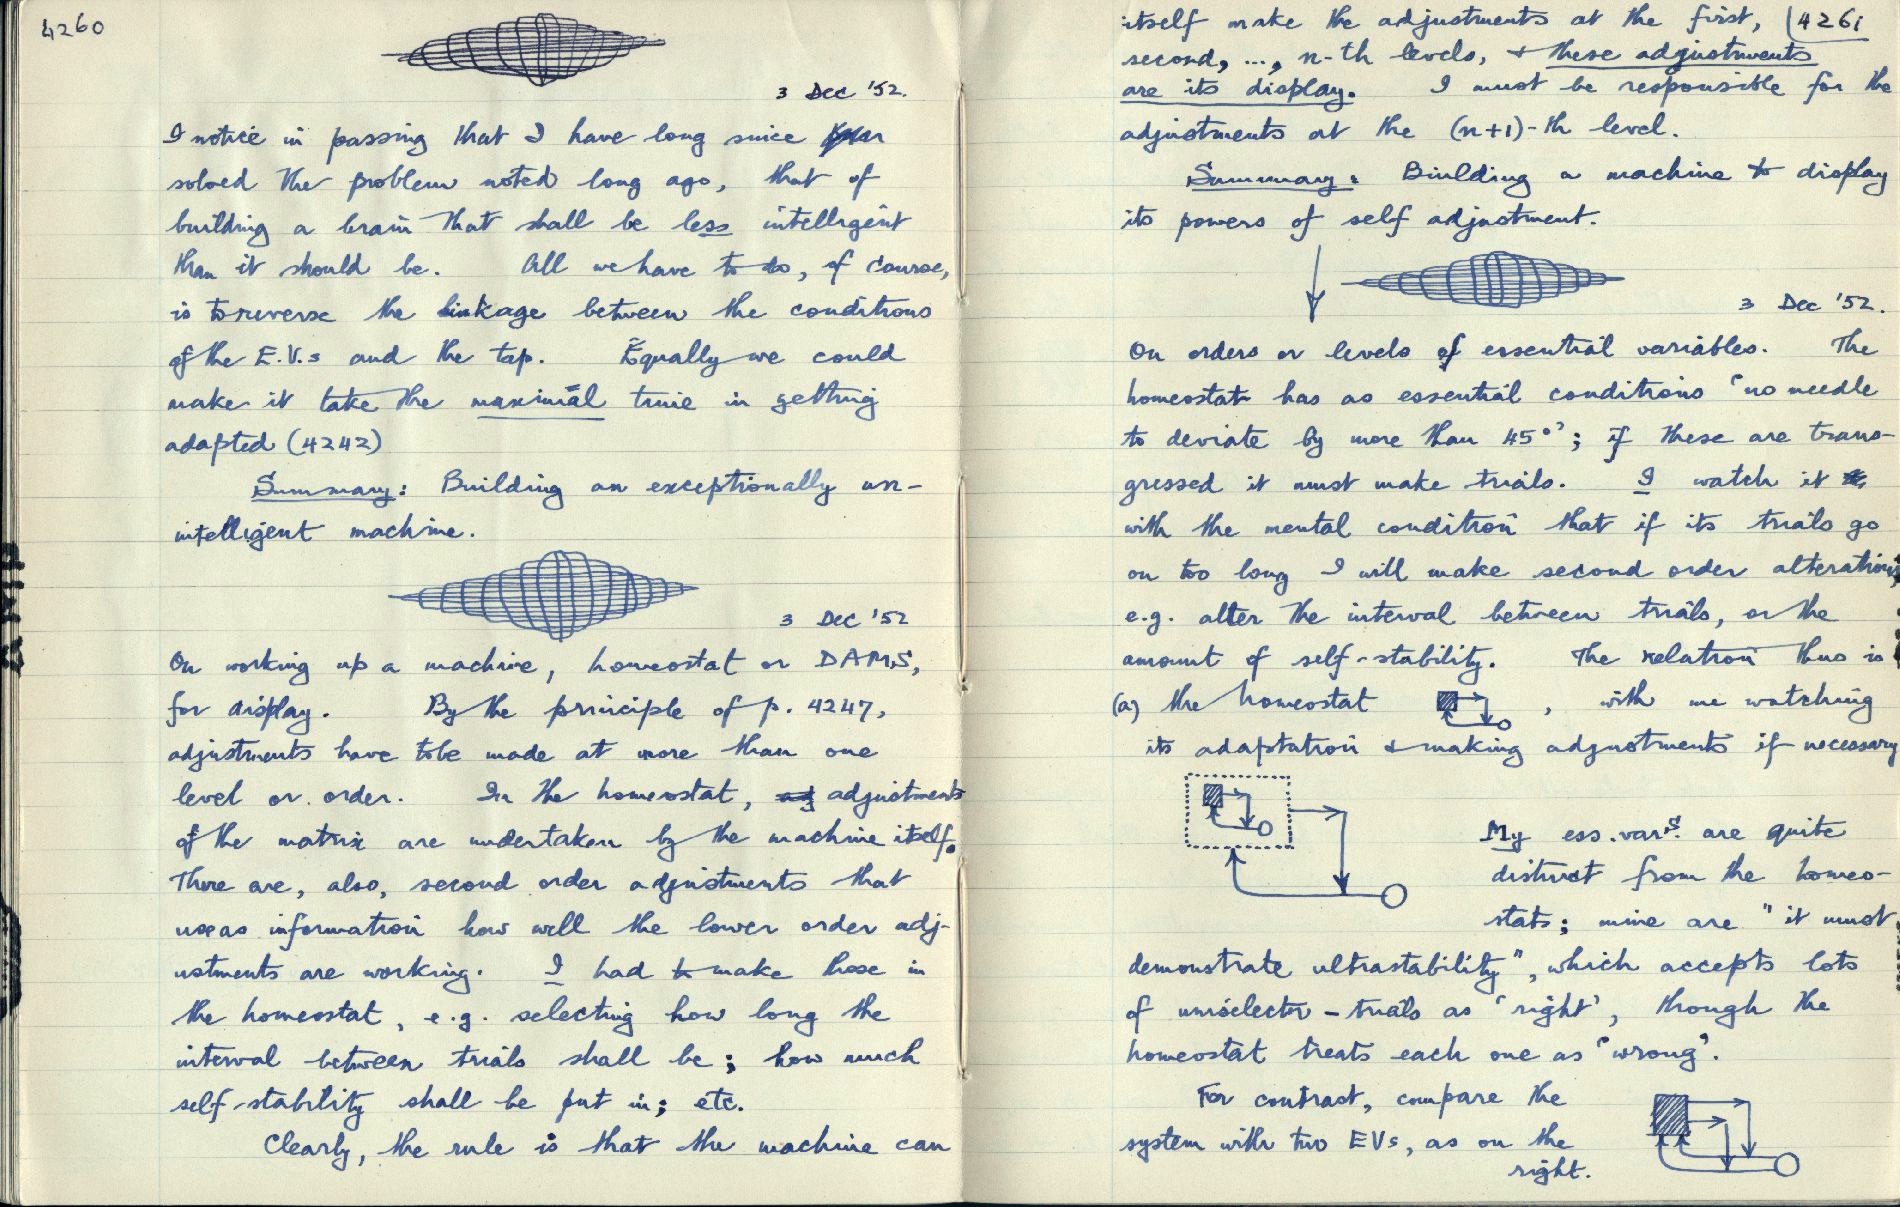 4260
3 Dec '52.
I notice in passing that I have long since
solved the problem noted long ago, that of
building a brain that shall be less intelligent
than it should be. All we have to do, of course,
is to reverse the linkage between the conditions
of the E.V.s and the tap. Equally we could
make it take the maximal time in getting
adapted (4242)
Summary: Building an exceptionally un-
intelligent machine.
3 Dec '52
On working up a machine, homeostat or DAMS,
for display. By the principle of p. 4247,
adjustments have to be made at more than one
level or order. In the homeostat, adjustments
of the matrix are undertaken by the machine itself.
There are, also, second order adjustments that
use as information how well the lower order adj-
ustments are working. I had to make these in
the homeostat, e.g. selecting how long the
interval between trials shall be; how much
self-stability shall be put in; etc.
Clearly, the rule is that the machine can
4261
itself make the adjustments at the first,
second, ..., n-th levels, + these adjustments
are its display. I must be responsible for the
adjustments at the (n+1)-th level.
Summary: Building a machine to display
its powers of self adjustment.
3 Dec '52.
On orders or levels of essential variables. The
homeostat has as essential conditions 'no needle
to deviate by more than 45°'; if these are trans-
gressed it must make trials. I watch it
with the mental condition that if its trials go
on too long I will make second order alterations,
e.g. alter the interval between trials, or the
amount of self-stability. The relation thus is
(a) the homeostat , with me watching
its adaptation + making adjustments if necessary
My ess. vars. are quite
distinct from the homeo-
stats; mine are "it must
demonstrate ultrastability", which accepts lots
of uniselector-trials as 'right', though the
homeostat treats each one as 'wrong'.
For contrast, compare the
system with two EVs, as on the
right.